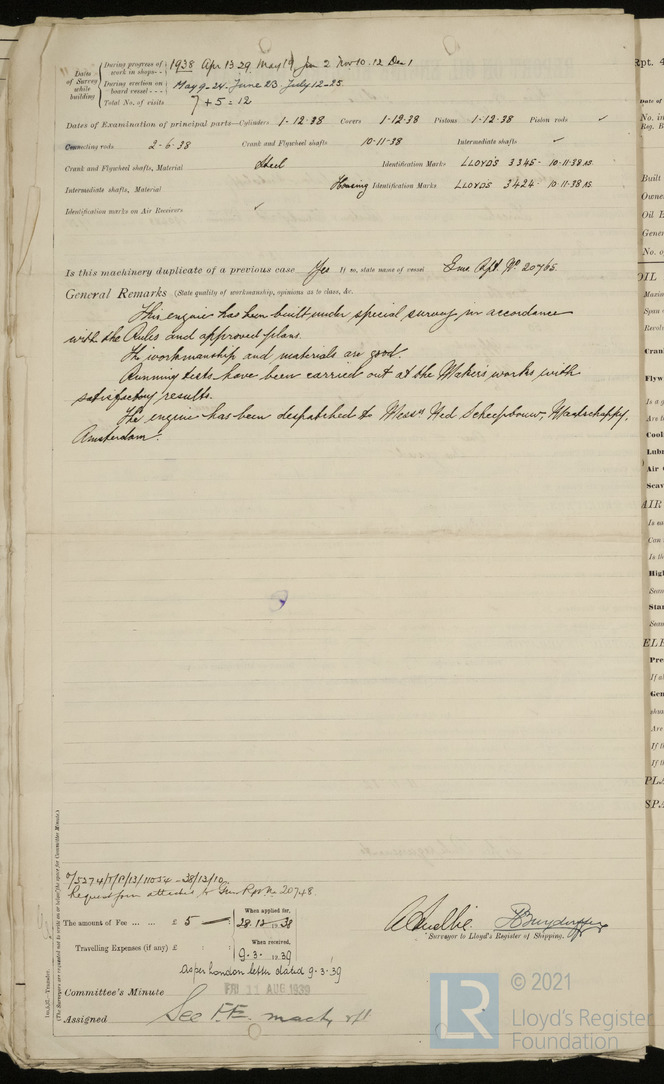 Dates of Survey while building
During progress of work in shops - - 1938 Apr 13.29. May 19, Jun 2 Nov 10. 12 Dec 1
During erection on board vessel - - - May 9-24- June 23 July 12-25
Total No. of visits 7 + 5 = 12
Dates of Examination of principal parts—Cylinders 1-12-38 Covers 1-12-38 Pistons 1-12-38 Piston rods ✓
Connecting rods 2-6-38 Crank and Flywheel shafts 10-11-38 Intermediate shafts ✓
Crank and Flywheel shafts, Material Steel Identification Marks LLOYD'S 3345- 10-11-38
Intermediate shafts, Material Housing Identification Marks LLOYD'S 3424- 10-11-38
Identification marks on Air Receivers ✓
Is this machinery duplicate of a previous case Yes If so, state name of vessel Rpt. No. 20765.
General Remarks (State quality of workmanship, opinions as to class, &c.
This engine has been built under special survey in accordance
with the Rules and approved plans.
The workmanship and materials are good.
Running tests have been carried out at the Makers works with
satisfactory results.
The engine has been despatched to Messrs Ned. Scheepbouw, Maatschappy,
Amsterdam.
Request form attached to Rpt No 20748.
The amount of Fee ... ... £ 5 — When applied for, 28.12.1938
Travelling Expenses (if any) £ : : When received, 9-3-1939
As per London letter dated 9-3-39
Surveyor to Lloyd's Register of Shipping.
Committee's Minute FRI 11 AUG 1939
Assigned See F.E. machy rpt
(The Surveyors are requested not to write on or below the space for Committee Minute.)
Rpt. 4
Date of
No. in
Reg. B
Built
Owne
Oil E
Gener
No. o
OIL
LR
© 2021
Lloyd's Register
Foundation